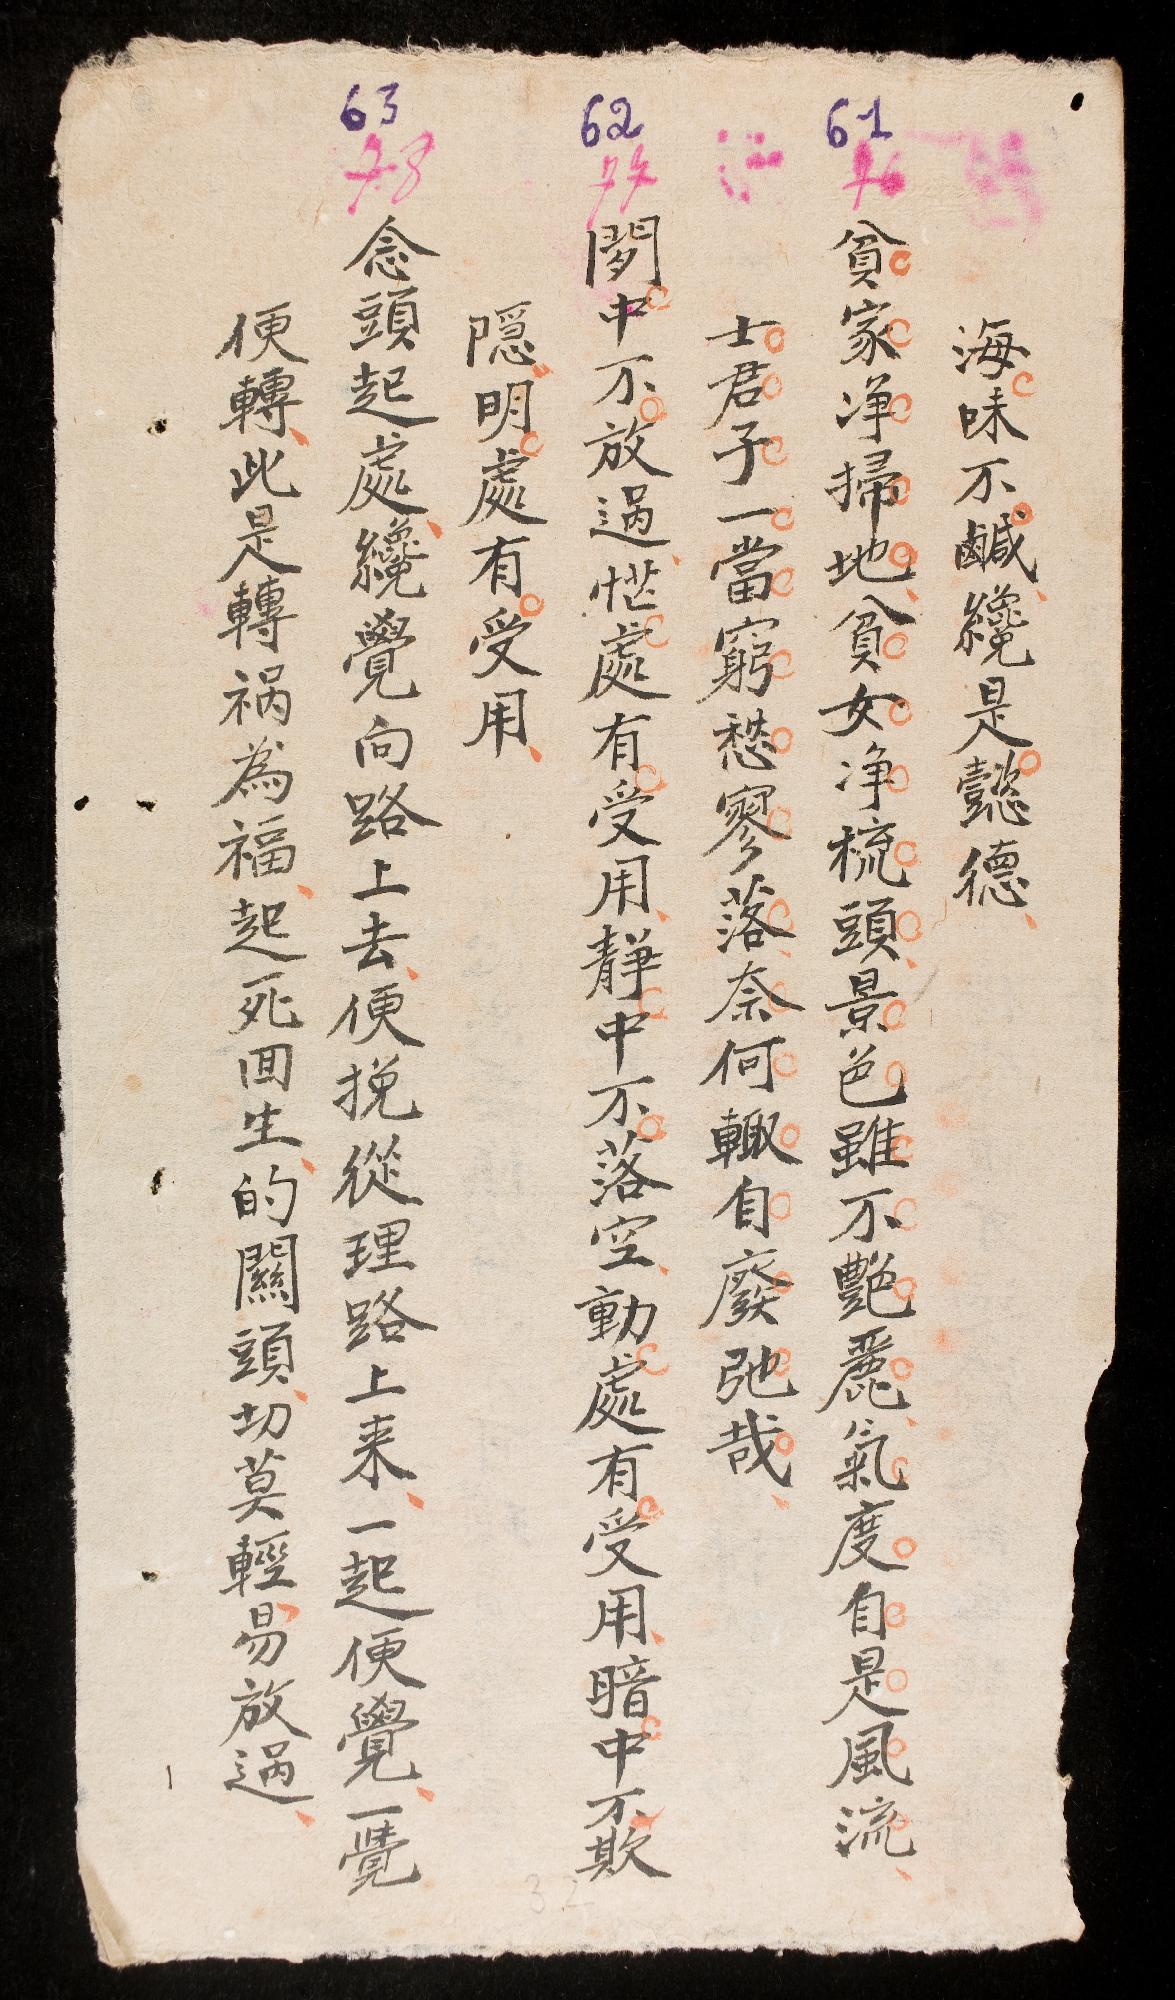 海味不鹹纔是懿德
61
76
貧家净掃地貧女净梳頭景色雖不艷麗氣度自是風流
士君子一當窮愁寥落奈何輙自廢弛哉
62
77
閒中不放過忙處有受用靜中不落空動處有受用暗中不欺
隱明處有受用
63
78
念頭起處纔覺向路上去便挽從理路上来一起便覺一覺
便轉此是轉祸為福起死囬生的關頭切莫輕易放過
32